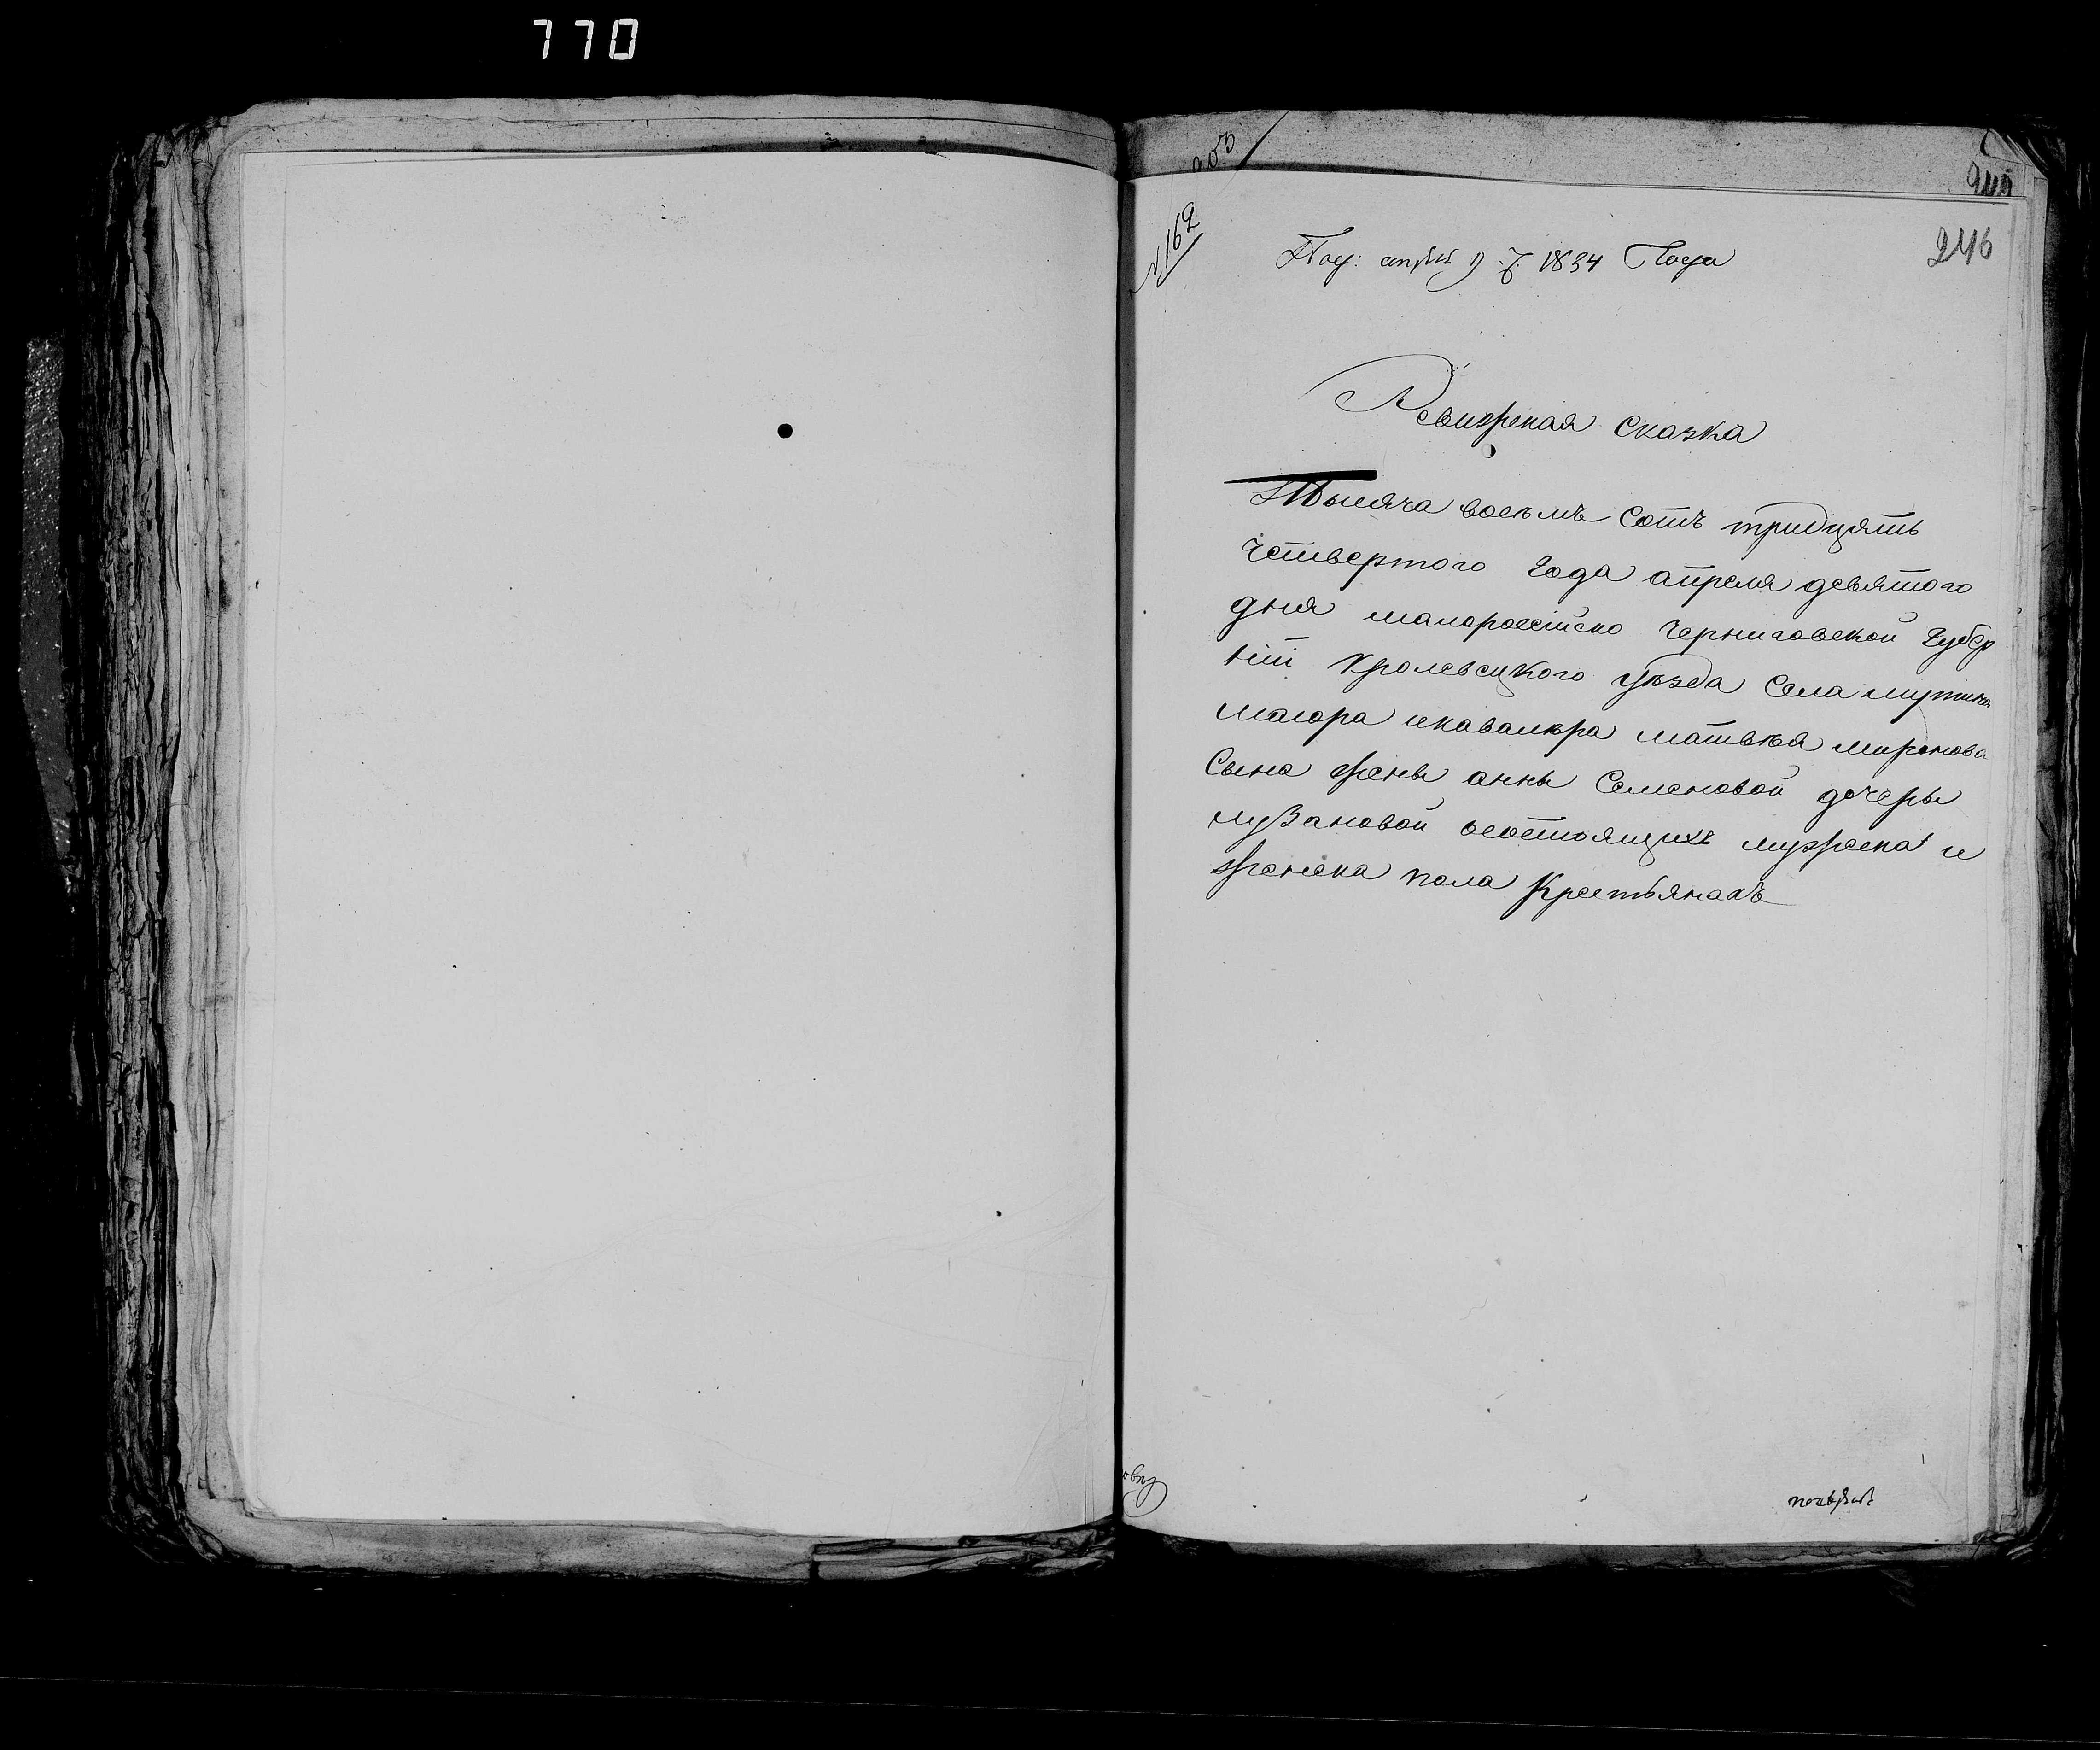 770
203
№ 162
246
Под: апреля 9 д. 1834 Года
Ревизская Сказка
Тысяча восемъ Сотъ тридцять
Четвертого Года апреля девятого
дня малоросийско Черниговской Губер
нїи Кролевецкого уѣзда Села мутина
маіора икавалера матвѣя миронова
Сына жены анны Семеновой дочеры
музановой осостоящихъ мужеска и
женска пола Крестьянахъ